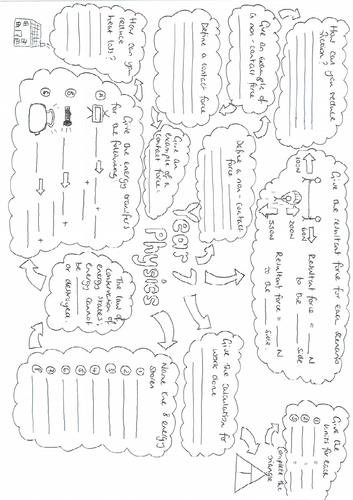 How can you reduce friction?
Give the resultant force for each scenario
100N
60N
Resultant force = ____ N
to the ____ side
200N
550N
Resultant force = ____ N
to the ____ side
Give the
units for each
①
②
③
Complete the
triangle
Give an example of
a non-contact force
Define a contact force
Define a non-contact
force
Give an
example of a
contact force.
Year 7
Physics
Give the calculation for
work done
How can you
reduce
heat loss?
Give the energy transfers
for the following
The law of
conservation of
energy states
energy cannot
be ____
or destroyed.
Name the 8 energy
stores
①
②
③
④
⑤
⑥
⑦
⑧